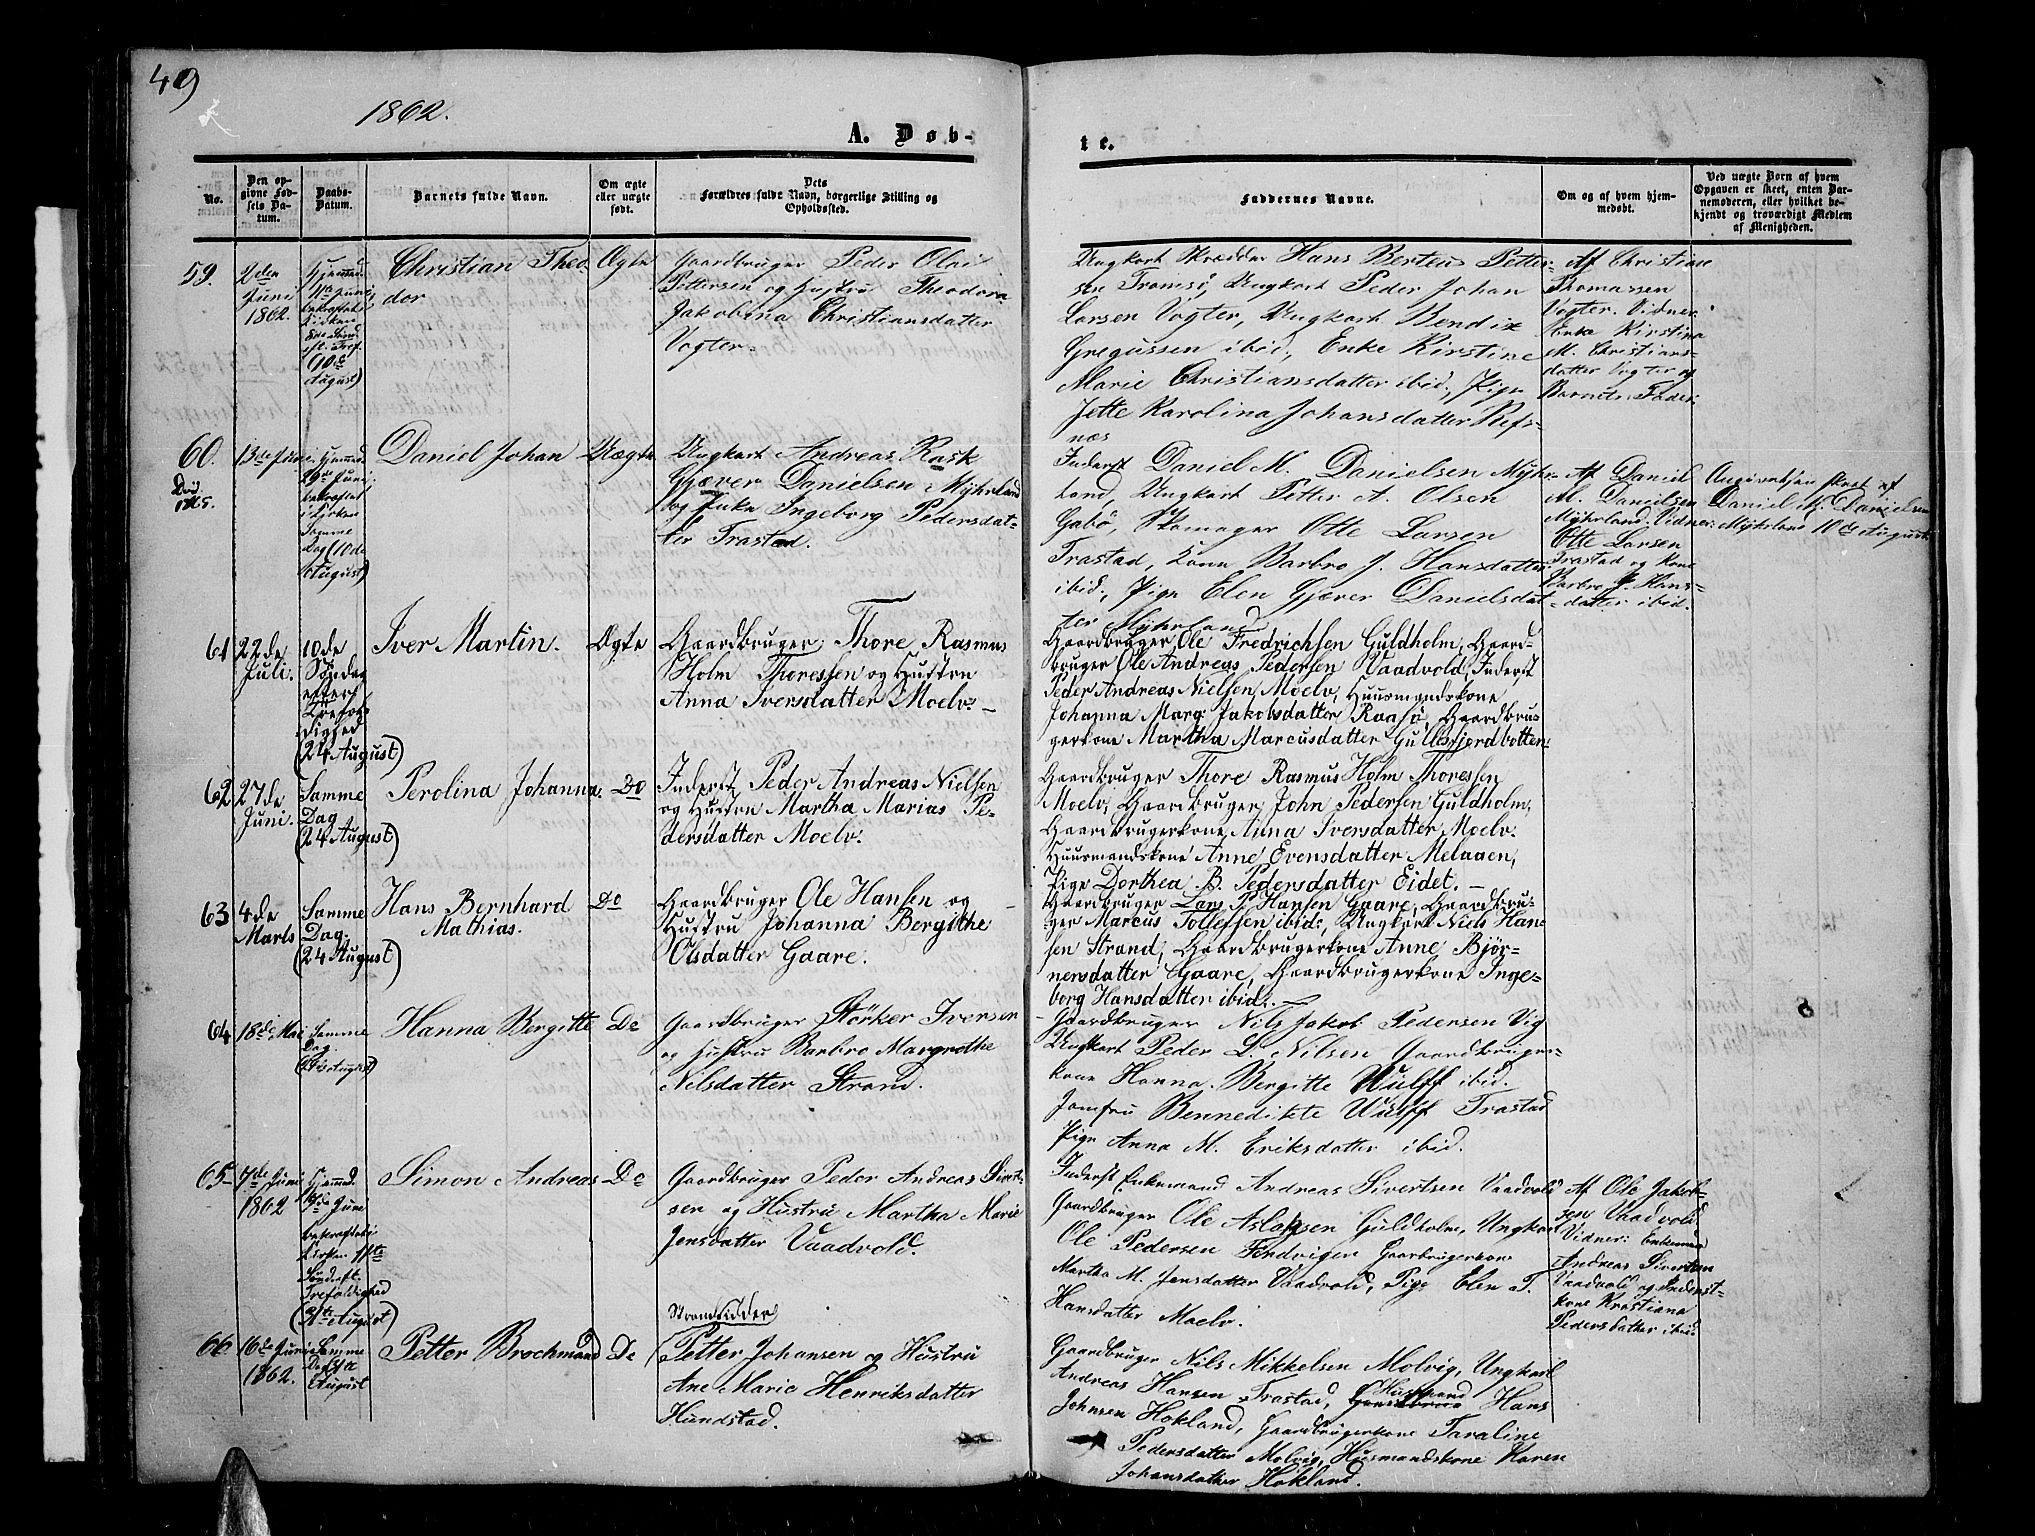 49
1862.
A. Døb-
te.
No.
Den op-
givne Fød-
sels Da-
tum.
Daabs-
Datum.
Barnets fulde Navn.
Om ægte
eller uægte
født.
Dets
Forældres fulde Navn, borgerlige Stilling og
Opholdssted.
Faddernes Navne.
Om og af hvem hjem-
medøbt.
Ved uægte Børn af hvem
Opgaven er skeet, enten Bar-
nemoderen, eller hvilket be-
kjendt og troværdigt Medlem
af Menigheden.
59.
2den
Juni
1862.
Hjemmed.
Juni,
bekræftet i
Kirken
8de Sønd.
eft. Tref.
(10de
August)
Christian Theo-
dor
Ægte
Gaardbruger Peder Olai
Pettersen og Hustru Theodora
Jakobina Christiansdatter
Vogter.
Ungkarl Skrædder Hans Berteus Petter-
sen Tromsø, Ungkarl Peder Johan
Larsen Vogter, Ungkarl Bendix
Gregussen ibid., Enke Kirstine
Marie Christiansdatter ibid., Pige
Jette Karolina Johansdatter Refs-
næs
Af Christian
Thomassen
Vogter. Vidner:
Enke Kirstina
M. Christians-
datter Vogter og
Barnets Fader.
60.
Død
1865.
13de Juni
Hjemmed.
29de Juni,
bekræftet
i Kirken
Samme
Dag (10de
August)
Daniel Johan
Uægte
Ungkarl Andreas Rask
Gjæver Danielsen Myhrland
og Enke Ingeborg Pedersdat-
ter Trastad.
Inderst Daniel M. Danielsen Myhr-
land, Ungkarl Petter A. Olsen
Gabø, Skomager Otte Larsen
Trastad, Kone Barbro J. Hansdatter
ibid., Pige Elen Gjæver Danielsdat-
ter Myhrland
Af Daniel
M. Danielsen
Myhrland. Vidner:
Otte Larsen
Trastad og Kone
Barbro J. Hans-
datter ibid.
Angivelsen skeet af
Daniel M. Danielsen
Myhrland 10de August.
61
22de
Juli.
10de
Søndag
efter
Trefol-
dighed
(24 August)
Iver Martin.
Ægte
Gaardbruger Thore Rasmus
Holm Thoressen og Hustru
Anna Iversdatter Moelv. —
Gaardbruger Ole Fredrichsen Guldholm, Gaard-
bruger Ole Andreas Pedersen Vaadvold, Inderst
Peder Andreas Nielsen, Moelv, Huusmandskone
Johanna Marg. Jakobsdatter Raasø, Gaardbru-
gerkone Martha Marcusdatter Gullesfjordbotten.
62
27de
Juni.
Samme
Dag
(24 August)
Perolina Johanna.
Do
Inderst Peder Andreas Nielsen
og Hustru Martha Marias Pe-
dersdatter Moelv.
Gaardbruger Thore Rasmus Holm Thoressen
Moelv, Gaardbruger John Pedersen Guldholm,
Gaardbrugerkone Anna Iversdatter Moelv.
Huusmandskone Anne Evensdatter Melaaen,
Pige Dorthea B. Pedersdatter Eidet. —
63
4de
Marts
Samme
Dag.
(24 August)
Hans Bernhard
Mathias.
Do
Gaardbruger Ole Hansen og
Hustru Johanna Bergithe
Olsdatter Gaare.
Gaardbruger Lars P. Hansen Gaare, Gaardbru-
ger Marcus Tollefsen ibid:, Ungkarl Niels Han-
sen Strand, Gaardbrugerkone Anne Bjør-
nersdatter Gaare, Gaardbrugerkone Inge-
borg Hansdatter ibid:. —
64
18de Mai
Samme
Dag
Hanna Bergitte
Do
Gaardbruger Störker Iversen
og Hustru Barbro Margrethe
Nilsdatter Strand.
Gaardbruger Nils Jakob Pedersen Vig
Ungkarl Peder L. Nilsen Gaardbruger-
kone Hanna Bergitte Wulff ibid.
Jomfru Bennedikte Wulff Trastad
Pige Anna M. Eriksdatter ibid.
65
7de Juni
1862
Hjemmed.
Juni
bekræftet i
Kirken 11te
Søn. eft.
Trefoldighed
(31te August)
Simon Andreas
Do
Gaardbruger Peder Andreas Sivert-
sen og Hustru Martha Marie
Jensdatter Vaadvold.
Inderst Enkemand Andreas Sivertsen Vaadvold
Gaardbruger Ole Aslaksen Guldholm, Ungkarl
Ole Pedersen Tendvigen Gaardbrugerkone
Martha M. Jensdatter Vaadvold, Pige Elen T.
Hansdatter Moelv.
Af Ole Jakob-
sen Vaadvold
Vidner: Enkemand
Andreas Sivertsen
Vaadvold og Inderst-
kone Kristiana
Pedersdatter ibid
66.
16de Juni
1862.
Samme
Dag 31te
August
Petter Brochmand
Do
Strandsidder
Petter Johansen og Hustru
Ane Marie Henriksdatter
Hundstad.
Gaardbruger Nils Mikkelsen Molvig, Ungkarl
Andreas Hansen Trastad, Husmand Hans
Johnsen Hokland, Gaardbrugerkone Taraline
Pedersdatter Molvig, Husmandskone Karen
Johansdatter Hokland.